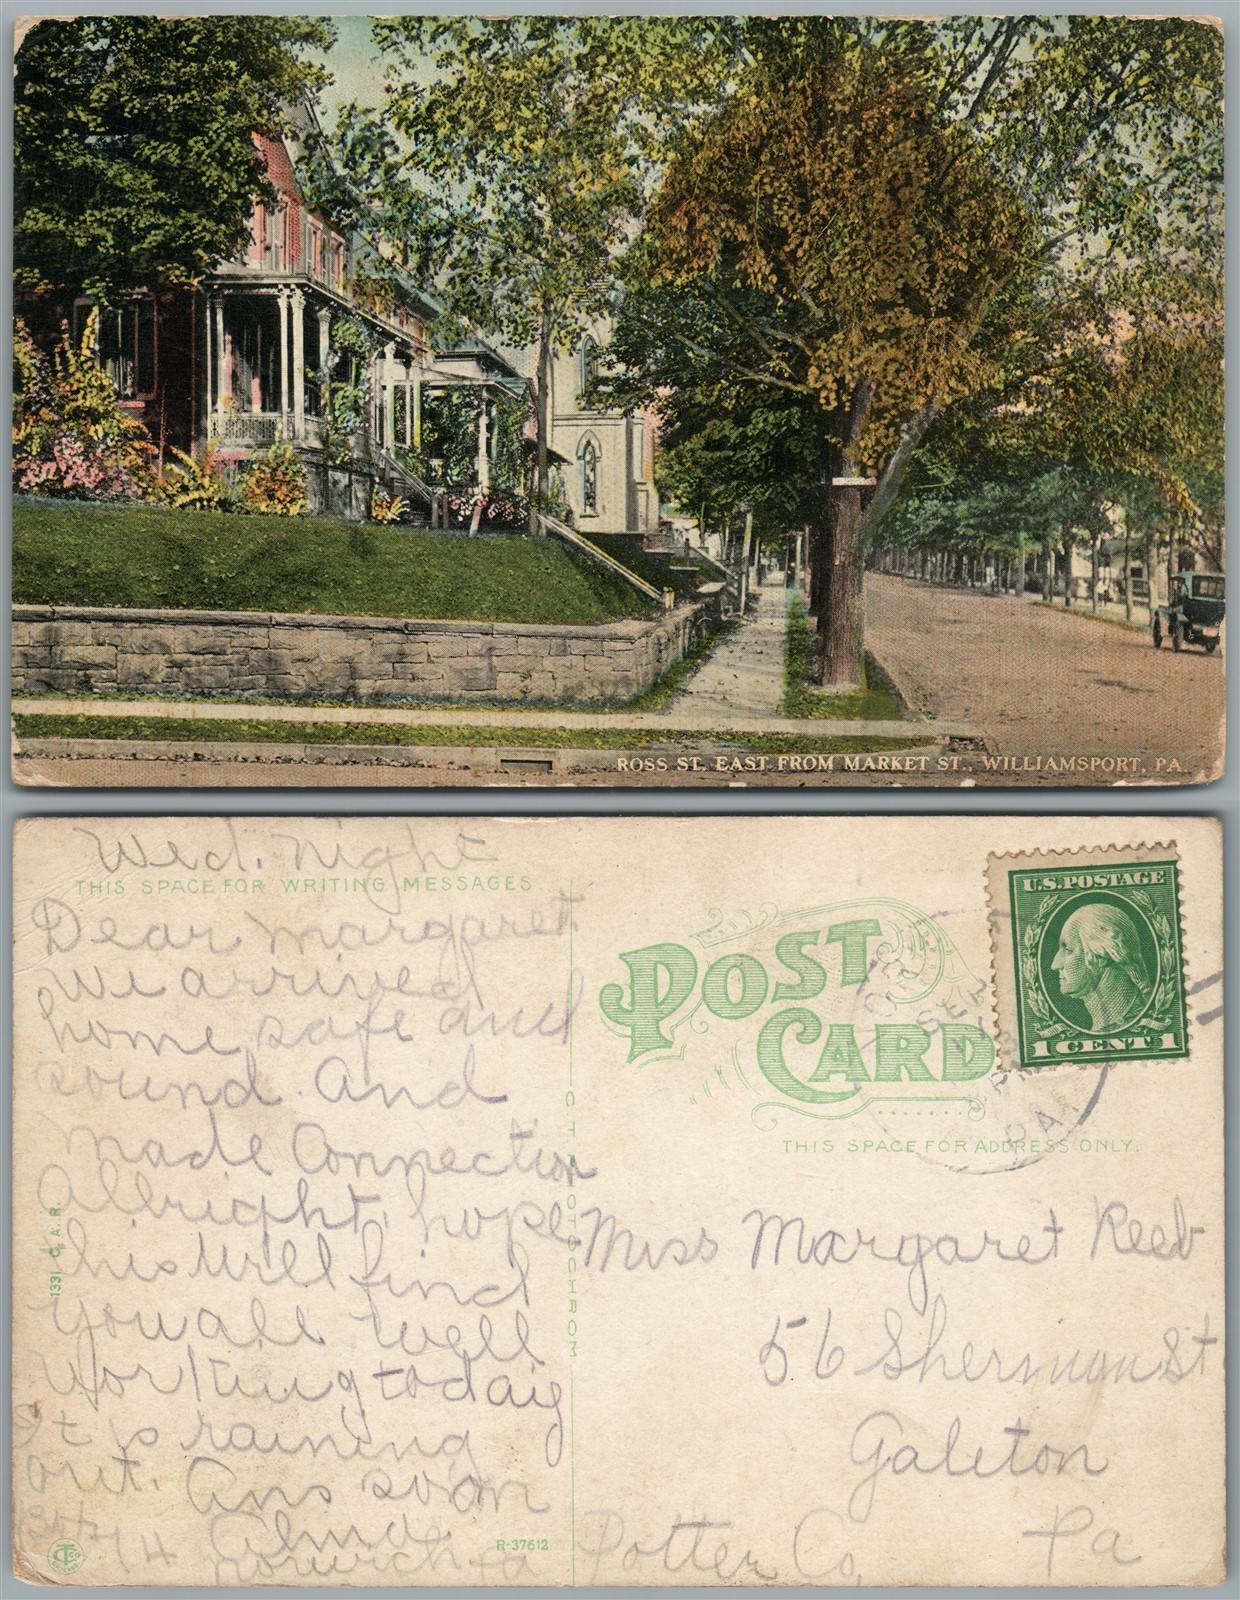 ROSS ST. EAST FROM MARKET ST., WILLIAMSPORT, PA.
Wed. Night
THIS SPACE FOR WRITING MESSAGES.
Dear Margaret
we arrived
home safe and
sound. and
made Connection
Allright, hope
this Will find
you all well
Working today
It is raining
out. Ans soon
Alma
1331 C. A. R.
R-37612
C T PHOTOCHROM
POST CARD
U.S. POSTAGE
1 CENT 1
PA.
THIS SPACE FOR ADDRESS ONLY.
Miss Margaret Reeb
56 Sherman St
Galeton
Potter Co, Pa